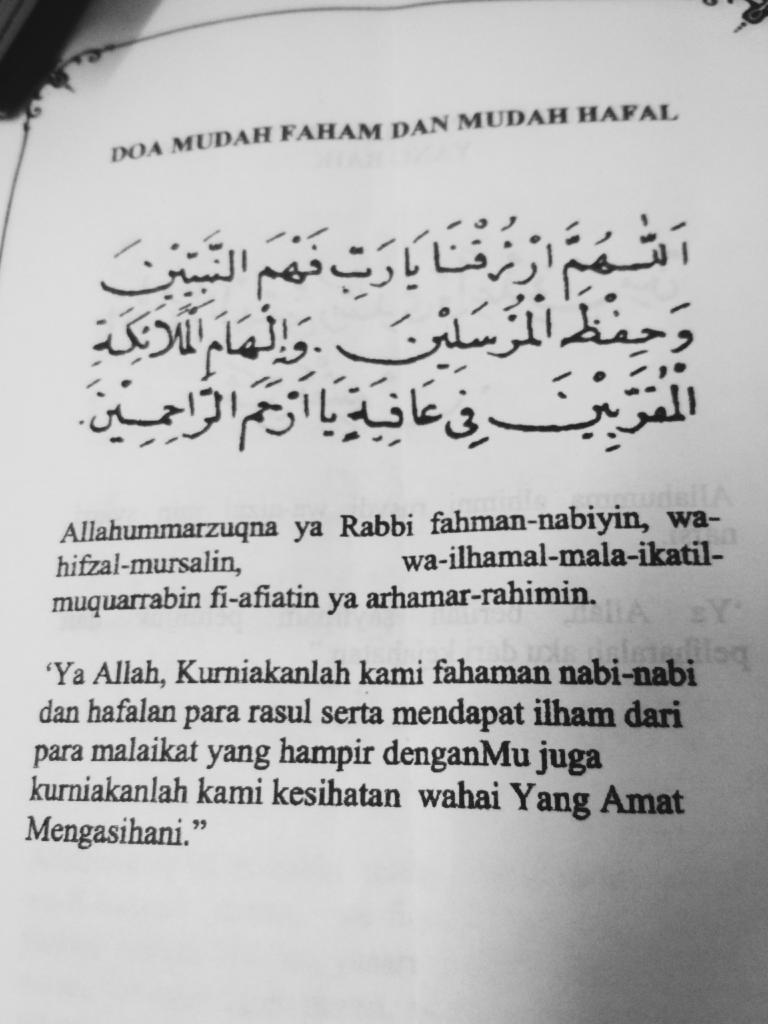 DOA MUDAH FAHAM DAN MUDAH HAFAL
اَللّٰهُمَّ ارْزُقْنَا يَا رَبِّ فَهْمَ النَّبِيِّيْنَ
وَحِفْظَ الْمُرْسَلِيْنَ . وَاِلْهَامَ الْمَلَائِكَةِ
الْمُقَرَّبِيْنَ فِى عَافِيَةٍ يَا اَرْحَمَ الرَّاحِمِيْنَ.
Allahummarzuqna ya Rabbi fahman-nabiyin, wa-
hifzal-mursalin, wa-ilhamal-mala-ikatil-
muquarrabin fi-afiatin ya arhamar-rahimin.
‘Ya Allah, Kurniakanlah kami fahaman nabi-nabi
dan hafalan para rasul serta mendapat ilham dari
para malaikat yang hampir denganMu juga
kurniakanlah kami kesihatan wahai Yang Amat
Mengasihani.”